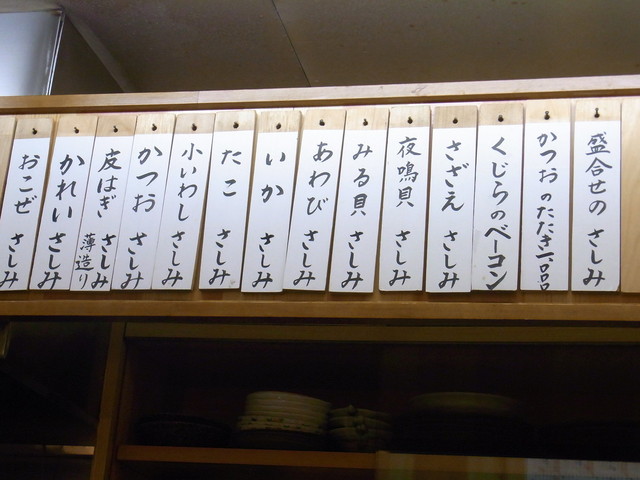 盛合せの さしみ
かつおのたたき一品
くじらのベーコン
さざえ さしみ
夜鳴貝 さしみ
みる貝 さしみ
あわび さしみ
いか さしみ
たこ さしみ
小いわし さしみ
かつお さしみ
皮はぎ さしみ
薄造り
かれい さしみ
おこぜ さしみ